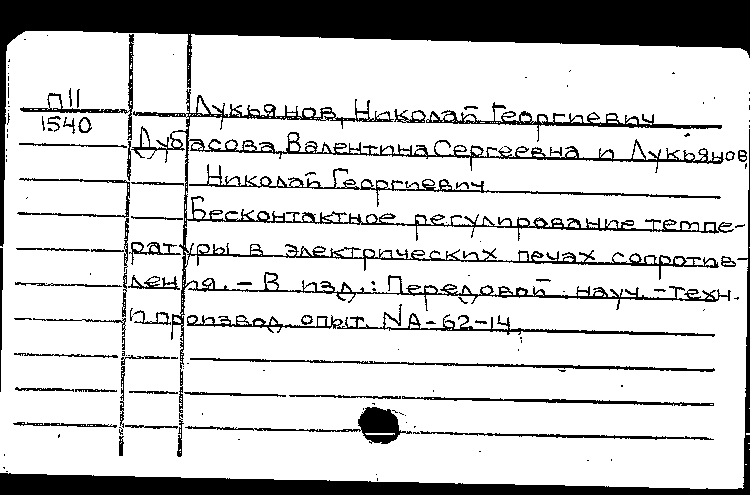 П11
1540
Лукьянов, Николай Георгиевич
Дубасова, Валентина Сергеевна и Лукьянов,
Николай Георгиевич
Бесконтактное регулирование темпе-
ратуры в электрических печах сопротив-
ления. - В изд.: Передовой науч.-техн.
и производ. опыт. NA-62-14.